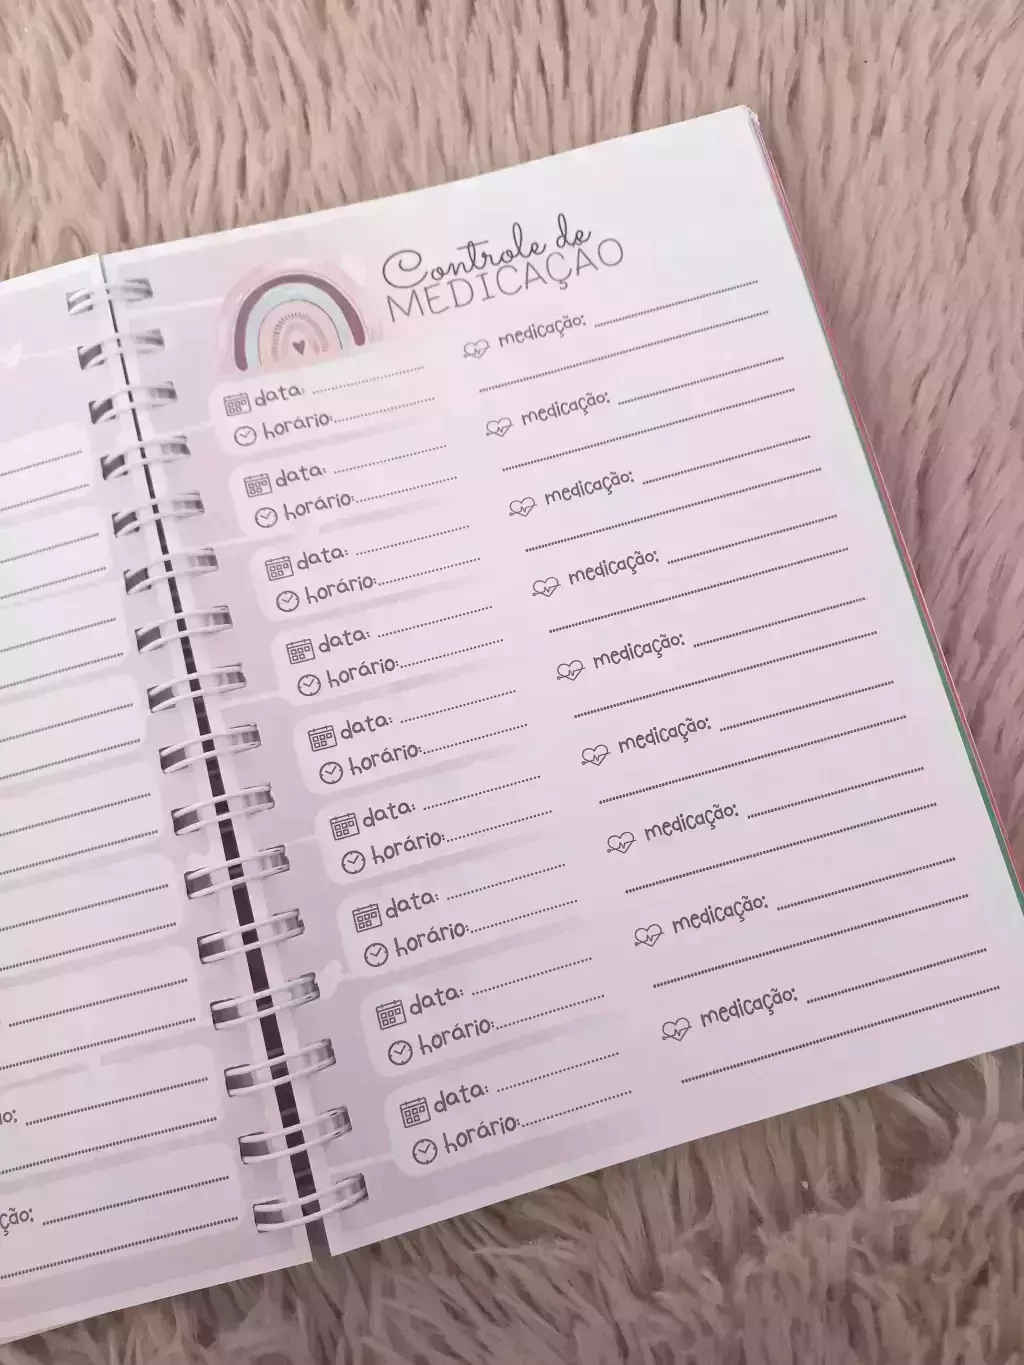 ção:
Controle de
MEDICAÇÃO
data:
horário:
medicação:
data:
horário:
medicação:
data:
horário:
medicação:
data:
horário:
medicação:
data:
horário:
medicação:
data:
horário:
medicação:
data:
horário:
medicação:
data:
horário:
medicação:
data:
horário:
medicação: